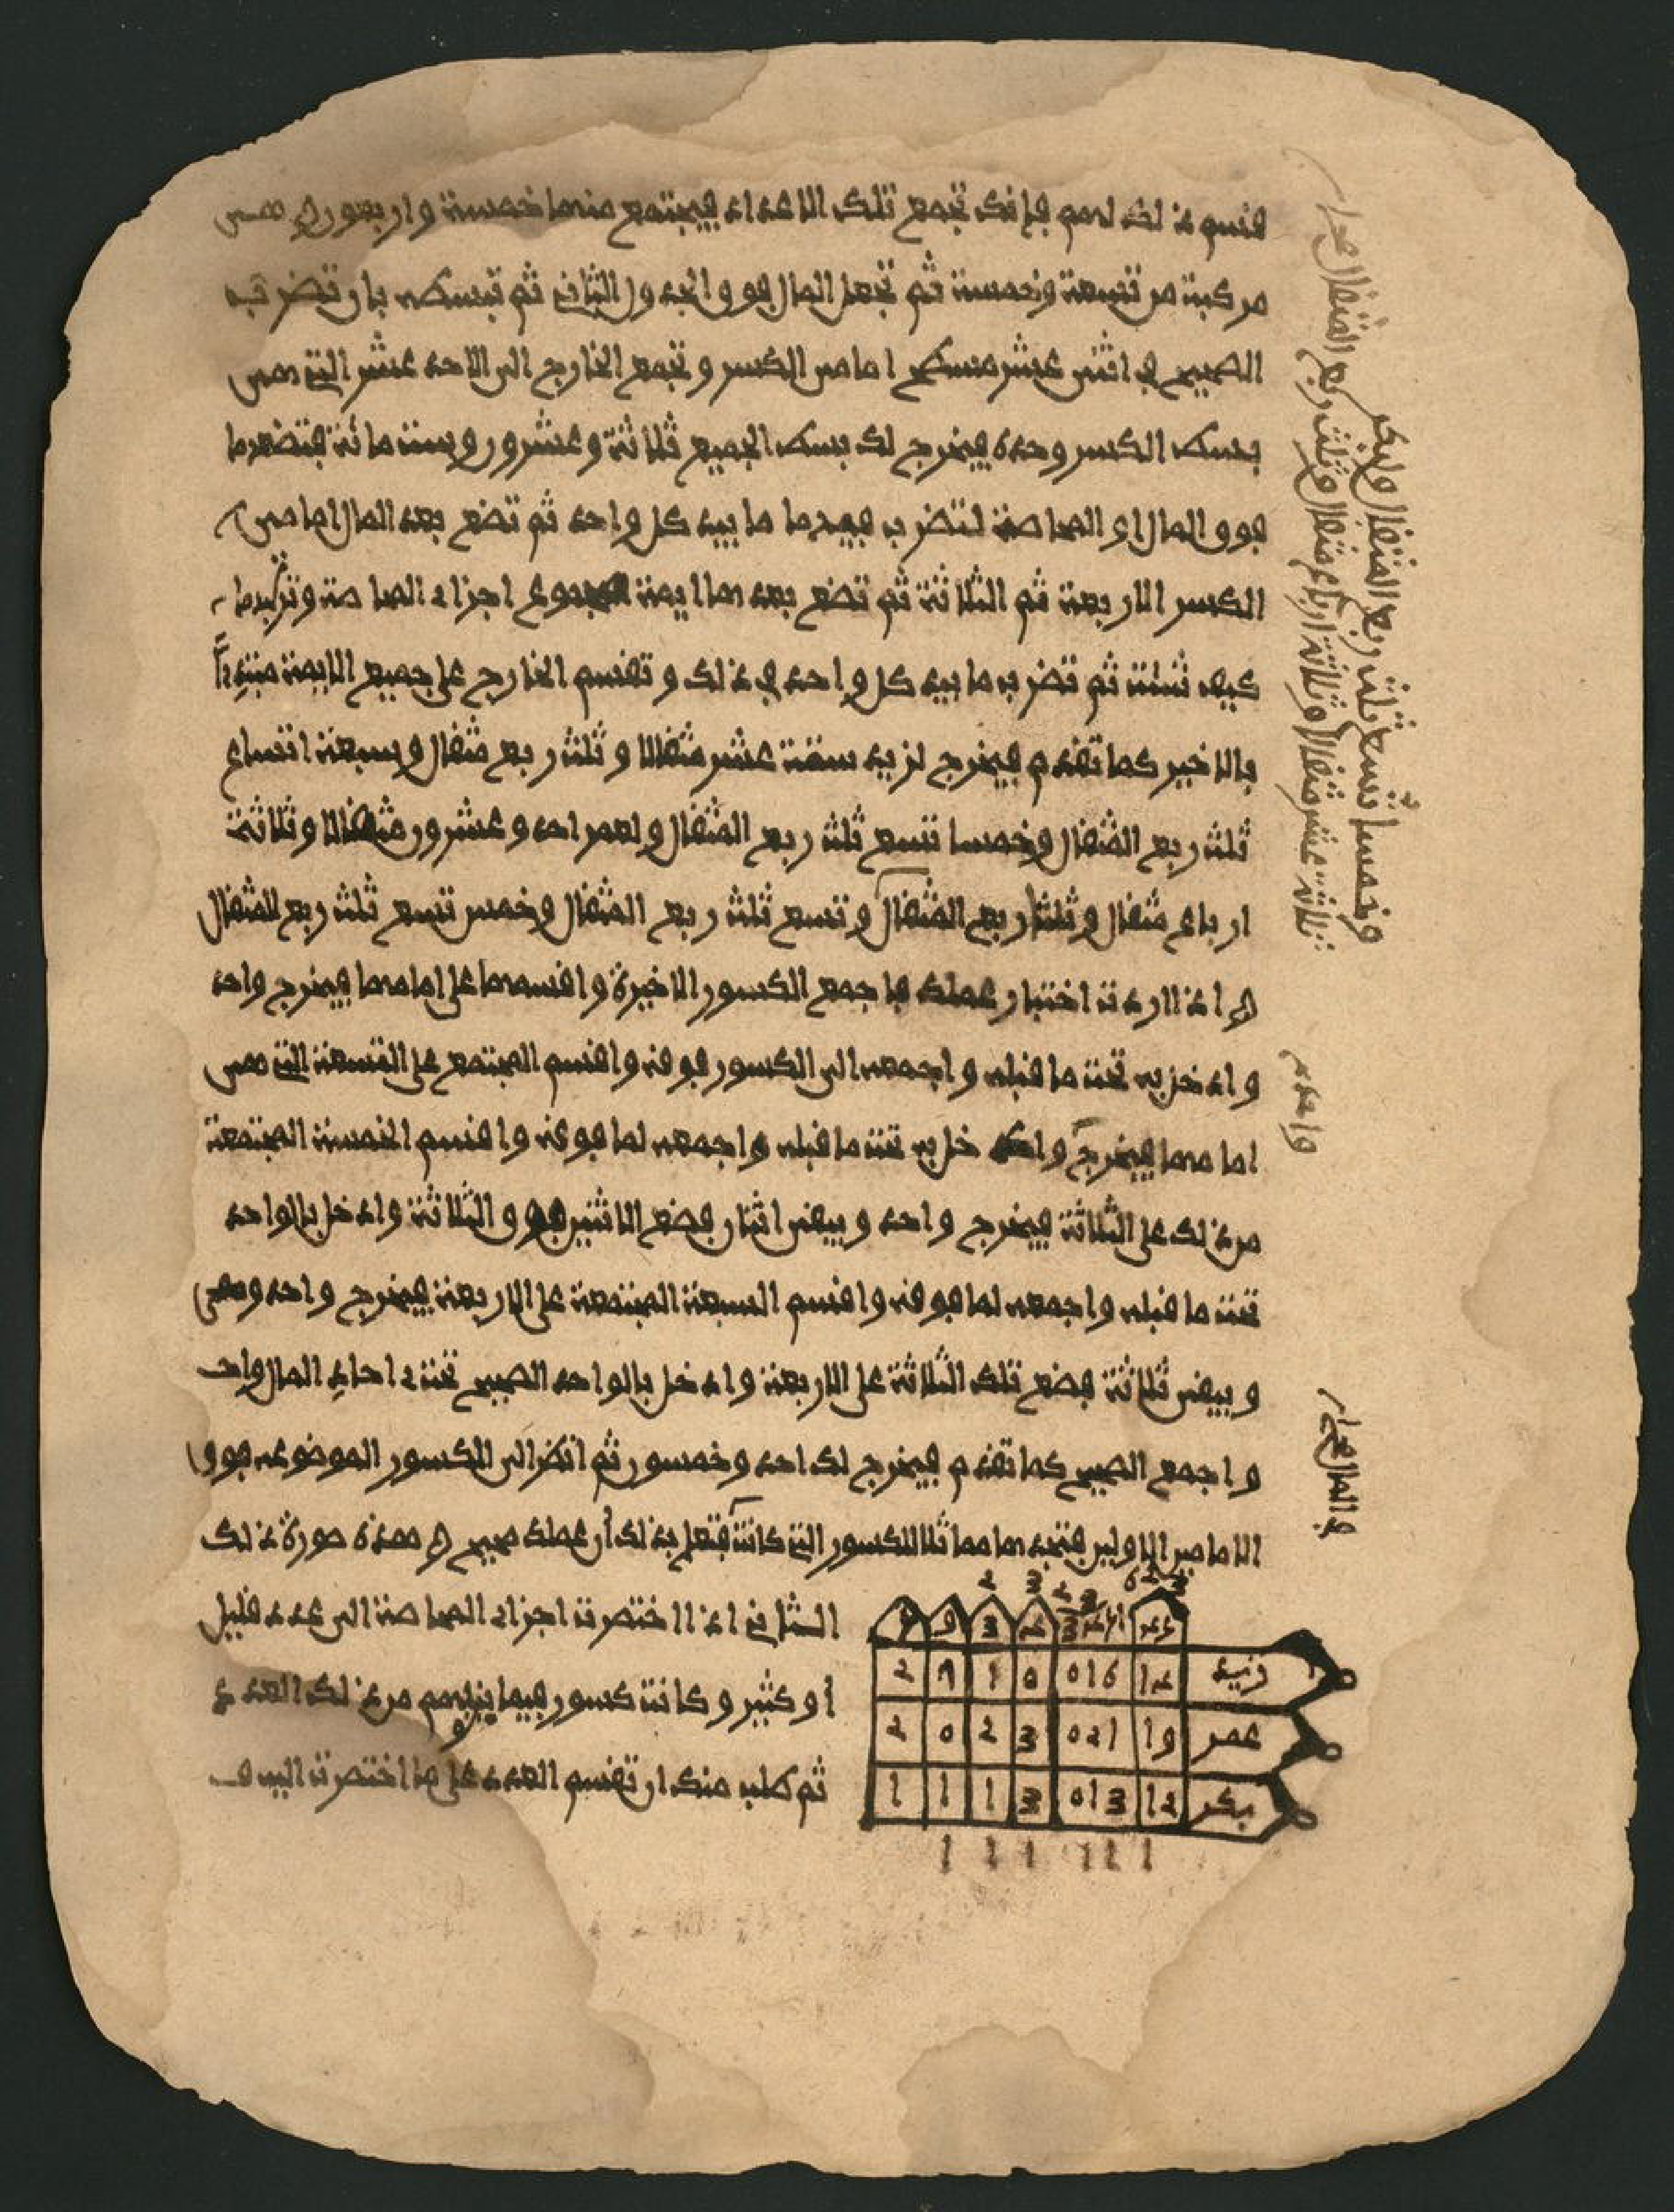 فنسم ذلك لهم فإنك تجمع تلك الاعداد فيجتمع منها خمسة واربعون وهى
مركبة من تسعة وخمسة ثم تجعل المال فوق الجدول الثاني ثم تبسطه بان تضرب
الصحيح في اثنى عشر مسطح امامى الكسر وتجمع الخارج الى الاحد عشر التي هى
بسط الكسر وحده فيخرج لك بسط الجميع ثلاثة وعشرون وستمائة فتضعها
فوق المال او المحاصة لتضرب فيها ما بيد كل واحد ثم تضع بعد المال امامى
الكسر الاربعة ثم الثلاثة ثم تضع بعدها ايمة مجموع اجزاء المحاصة وترتبها
كيف شئت ثم تضرب ما بيد كل واحد في ذلك وتقسم الخارج على جميع الايمة مبتدءا
بالاخير كما تقدم فيخرج لزيد ستة عشر مثقالا وثلث ربع مثقال وسبعة اتساع
ثلث ربع المثقال وخمسا تسع ثلث ربع المثقال ولعمر احد وعشرون مثقالا وثلاثة
ارباع مثقال وثلثا ربع المثقال وتسع ثلث ربع المثقال وخمس تسع ثلث ربع المثقال
اذا اردت اختبار عملك فاجمع الكسور الاخيرة واقسمها على امامها فيخرج واحد
وادخل به تحت ما قبله واجمعه الى الكسور فوقه واقسم المجتمع على التسعة التي هى
امامها فيخرج واحد ادخل به تحت ما قبله واجمعه لما فوقه واقسم الخمسة المجتمعة
من ذلك على الثلاثة فيخرج واحد ويبقى اثنان فضع الاثنين فوق الثلاثة وادخل بالواحد
تحت ما قبله واجمعه لما فوقه واقسم السبعة المجتمعة على الاربعة فيخرج واحد وهى
ويبقى ثلاثة فضع تلك الثلاثة على الاربعة وادخل بالواحد الصحيح تحت احاد المال واحد
واجمع الصحيح كما تقدم فيخرج لك احد وخمسون ثم انظر الى الكسور الموضوعة فوق
الامامين الاولين فتجدها مماثلا للكسور التي كانت فتعلم بذلك أن عملك صحيح وهذه صورة ذلك
الثاني اذا اختصرت اجزاء المحاصة الى عدد قليل
أو كثير وكانت كسور فيما ينوبهم من ذلك العدد
ثم طلب منك ان تقسم العدد على ما اختصرت اليه
زيد
عمر
بكر
ثلاثة عشر مثقالا وثلاثة ارباع مثقال وثلث ربع المثقال
وخمسا تسع ثلث ربع المثقال ولبكر
واحد
في المال